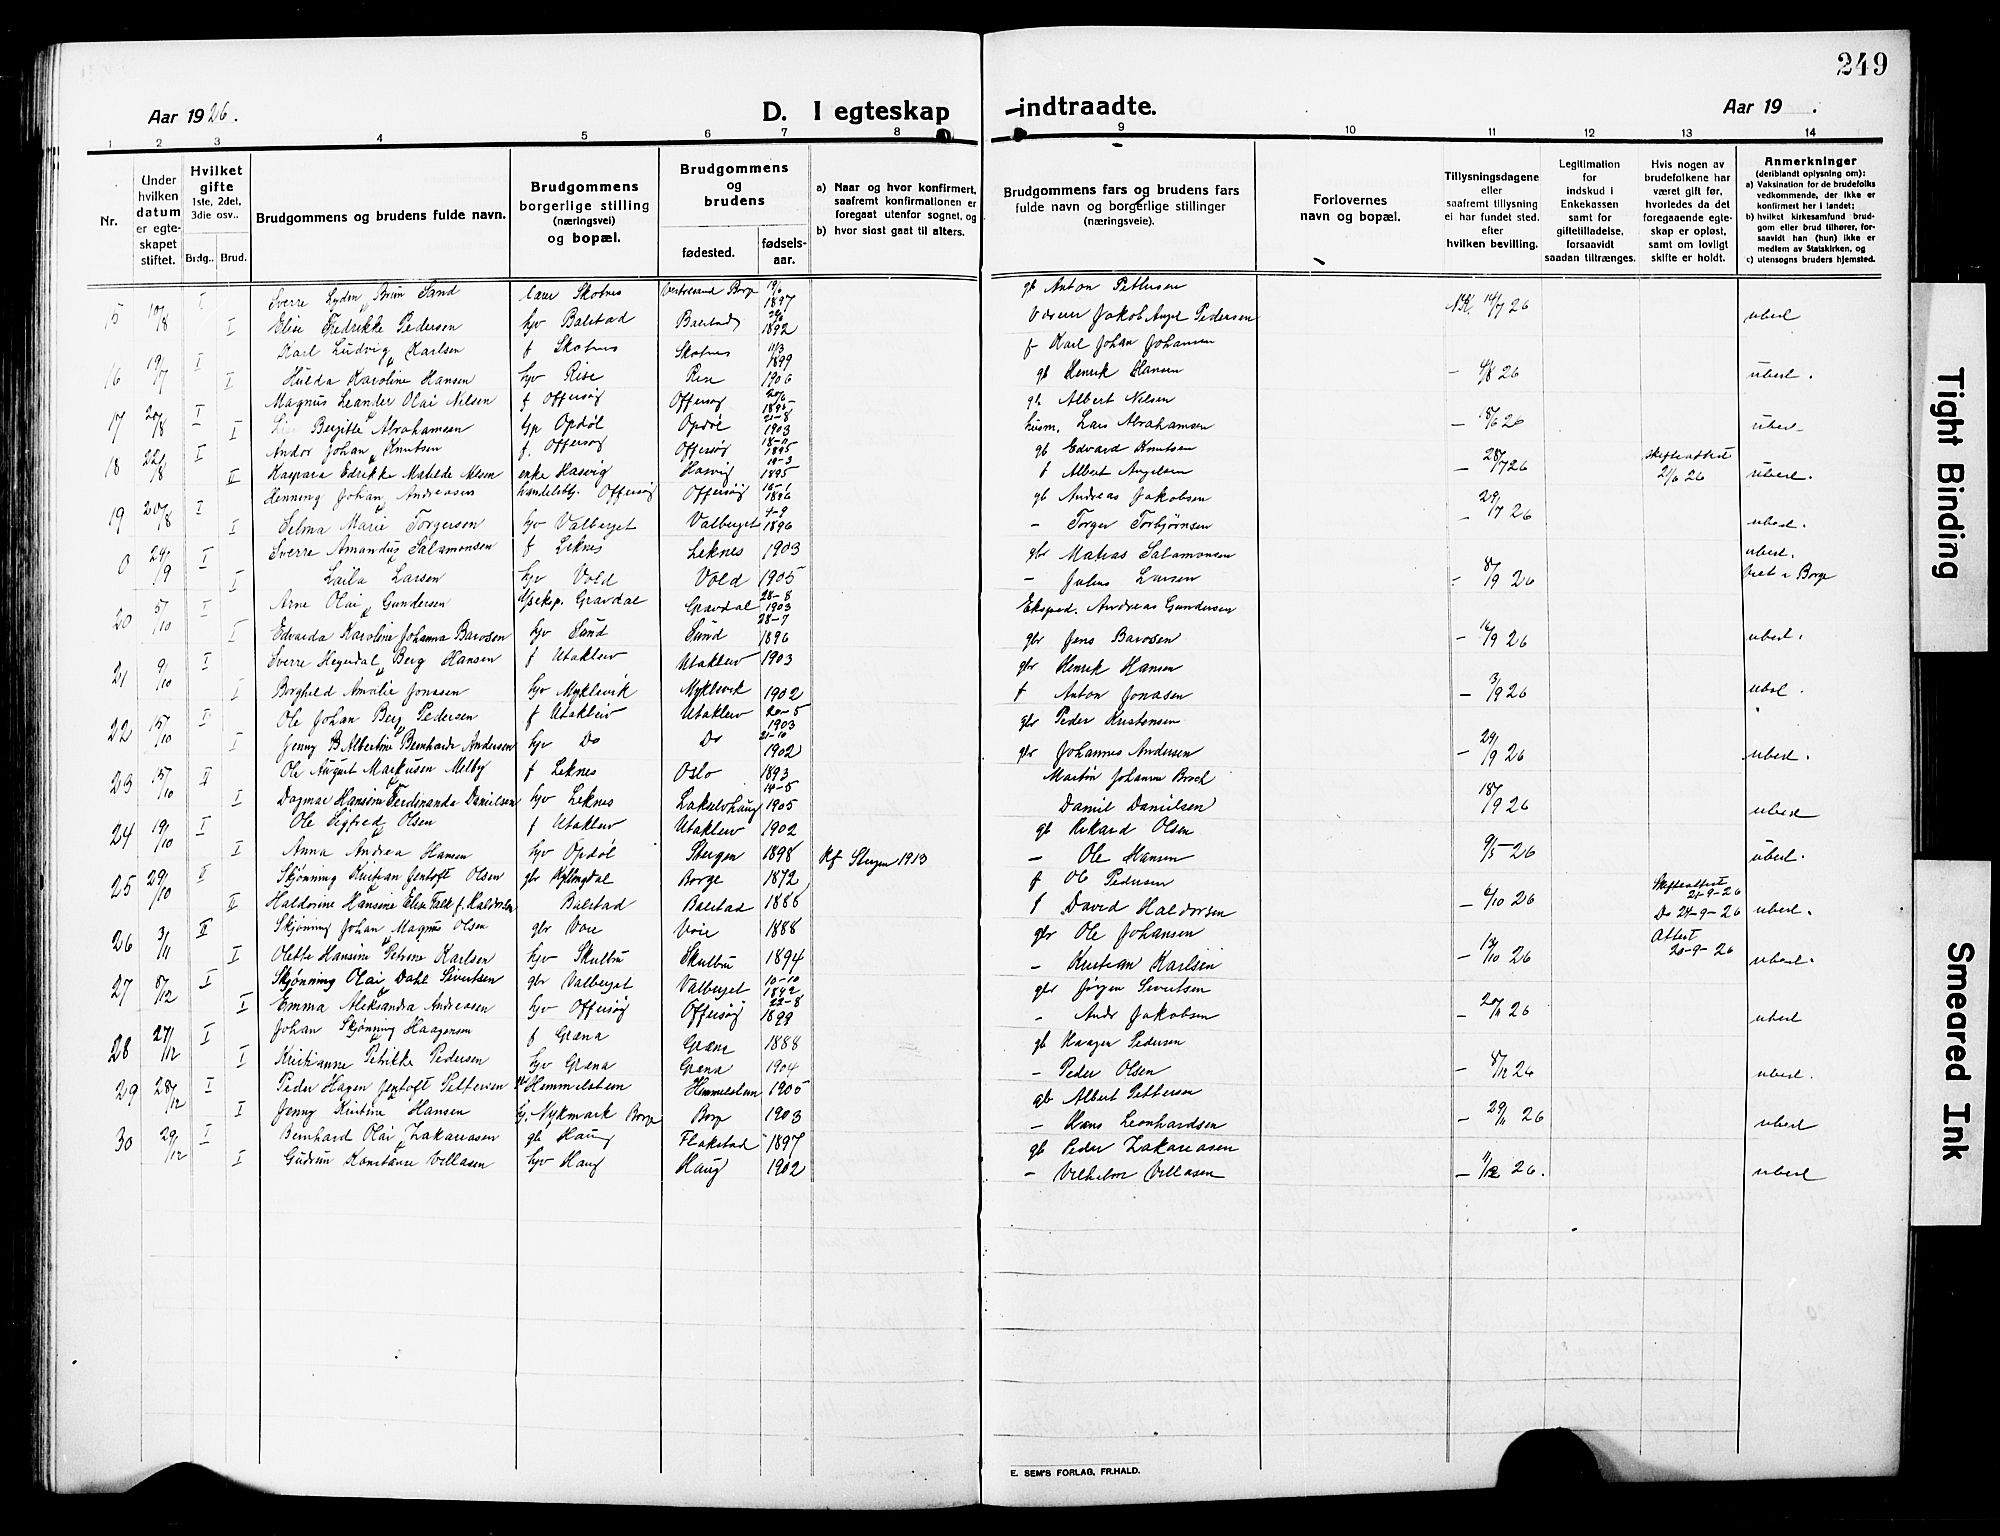 249
Aar 1926.
D. I egteskap
-indtraadte.
Aar 19 .
1 2 3 4 5 6 7 8 9 10 11 12 13 14
Nr.
Under hvilken datum er egteskapet stiftet.
Hvilket gifte 1ste, 2det, 3die osv..
Brdg.. Brud.
Brudgommens og brudens fulde navn.
Brudgommens borgerlige stilling (næringsvei) og bopæl.
Brudgommens og brudens
fødested. fødsels-aar.
a) Naar og hvor konfirmert, saafremt konfirmationen er foregaat utenfor sognet, og
b) hvor sidst gaat til alters.
Brudgommens fars og brudens fars fulde navn og borgerlige stillinger (næringsveie).
Forlovernes navn og bopæl.
Tillysningsdagene eller saafremt tillysning ei har fundet sted. efter hvilken bevilling.
Legitimation for indskud i Enkekassen samt for giftetilladelse, forsaavidt saadan tiltrænges.
Hvis nogen av brudefolkene har været gift før, hvorledes da det foregaaende egteskap er opløst, samt om lovligt skifte er holdt.
Anmerkninger (deriblandt oplysning om):
a) Vaksination for de brudefolks vedkommende, der ikke er konfirmert her i landet;
b) hvilket kirkesamfund brudgom eller brud tilhører, forsaavidt han (hun) ikke er medlem av Statskirken, og
c) utensogns bruders hjemsted.
15 10/8 I Sverre Lyder Brun Sand Skotnes 19/6 1897 gb Anton Pettersen
I Elise Fredrikke Pedersen hjv Balstad Balstad 1892 Jakob Angel Pedersen 14/7 26 uberl
Karl Ludvig Karlsen f Skotnes Skotnes 11/3 1899 f Karl Johan Johansen
16 19/7 I I Hulda Karoline Hansen hjv Rise Rise 1906 gb Henrik Hansen – 4/8 26 uberl.
Magnus Leander Olai Nilsen f Offersøy Offersøy 20/6 1895 gb. Albert Nilsen
17 20/8 I I Bergitte Abrahamsen hjv Opdøl Opdøl 21-8 1903 husm. Lars Abrahamsen – 18/6 26 uberl
Andor Johan Knutsen f. Offersøy Offersøy 18-11 1895 gb Edvard Knutsen
18 22/8 I II Kaspara Edrikke Matilde Olsen enke Hasvig Hasvig 19-3 1895 f Albert Angelsen – 28/7 26 Skifteattest 2/6 26 uberl.
Henning Johan Andreassen Offersøy Offersøy 1896 gb Andreas Jakobsen
19 20/8 I I Selma Marie Torgersen hjv Valberget Valberget 4-9 1896 – Torger Torbjørnsen – 29/7 26 uberl.
Sverre Amandus Salamonsen f Leknes Leknes 1903 gbr Matias Salamonsen uberl.
0 24/9 I I Laila Larsen hjv Vold Vold 1905 – Julius Larsen – 8/9 26 Viet i Borge
Arne Olai Gundersen Gravdal Gravdal 28-8 1903 Eksped. Andreas Gundersen
20 5/10 I I Edvarda Karoline Johanna Barosen hjv Sund Sund 28-7 1896 gbr Jens Barosen – 16/9 26 uberl.
Sverre Hegerdal Berg Hansen f Utakleiv Utakleiv 1903 gbr Henrik Hansen
21 9/10 I I Borghild Amalie Jonasen hjv Myklevik Myklevik 1902 f Anton Jonasen – 3/9 26 uberl.
Ole Johan Berg Pedersen f Utakleiv Utakleiv 20-5 1903 gbr Peder Kristensen
22 15/10 I I Jenny B Albertine Bernharda Andersen hjv Do Do 21-10 1902 gbr Johannes Andersen – 24/9 26 uberl.
Ole August Markusen Melby f Leknes Oslo 1893 Martin Johannes Broch
23 15/10 II I Dagmar Hansine Ferdinanda Danielsen hjv Leknes Lakselvhaug 14-5 1905 Daniel Danielsen 18/9 26 uberl
Ole Sigfred Olsen f Utakleiv Utakleiv 1902 gb Rikard Olsen
24 19/10 I I Anna Andrea Hansen hjv Opdøl Steigen 1898 Kf Steigen 1913 – Ole Hansen 9/5-26 uberl.
Skjønning Kristian Jentoft Olsen gbr Kyllingdal Borge 1872 f Ole Pedersen
25 29/10 II II Haldorine Hansine Elise Falk f. Haldorsen Balstad Balstad 1886 f David Haldorsen – 6/10 26 Skifteattest 21-9-26 Do 24-9-26 uberl.
Skjønning Johan Magnus Olsen gbr Voie Voie 1888 gbr Ole Johansen
26 3/11 II I Olette Hansine Petrine Karlsen hjv Skulbru Skulbru 1894 – Kristian Karlsen – 13/10 26 Attest 20-9-26 uberl.
Skjønning Olai Dahl Sivertsen gbr Valberget Valberget 10-10 1892 gbr Jørgen Sivertsen
27 8/12 I I Emma Aleksandra Andreasen hjv Offersøy Offersøy 22-8 1899 – Andr Jakobsen – 20/11 26 uberl
Johan Skjønning Haagensen f Græna Græna 1888 gb Haagen Pedersen
28 27/12 I I Kristianne Petrikke Pedersen hjv Græna Græna 1904 – Peder Olsen – 8/12 26 uberl.
29 28/12 I Peder Hagen Jentoft Pettersen Hemmelstein Himmelstein 1905 gb Albert Pettersen
I Jenny Kristine Hansen hj. Nykmark Borge Borge 1903 – Hans Leonhardsen – 29/11 26 uberl
30 29/12 I Bernhard Olai Zakariasen gb Haug Flakstad 1897 gb Peder Zakariasen
I Gudrun Konstanse Villasen hjv Haug Haug 1902 – Vilhelm Villasen – 11/12 26. uberl
E. SEM'S FORLAG, FR.HALD.
Tight Binding
Smeared Ink